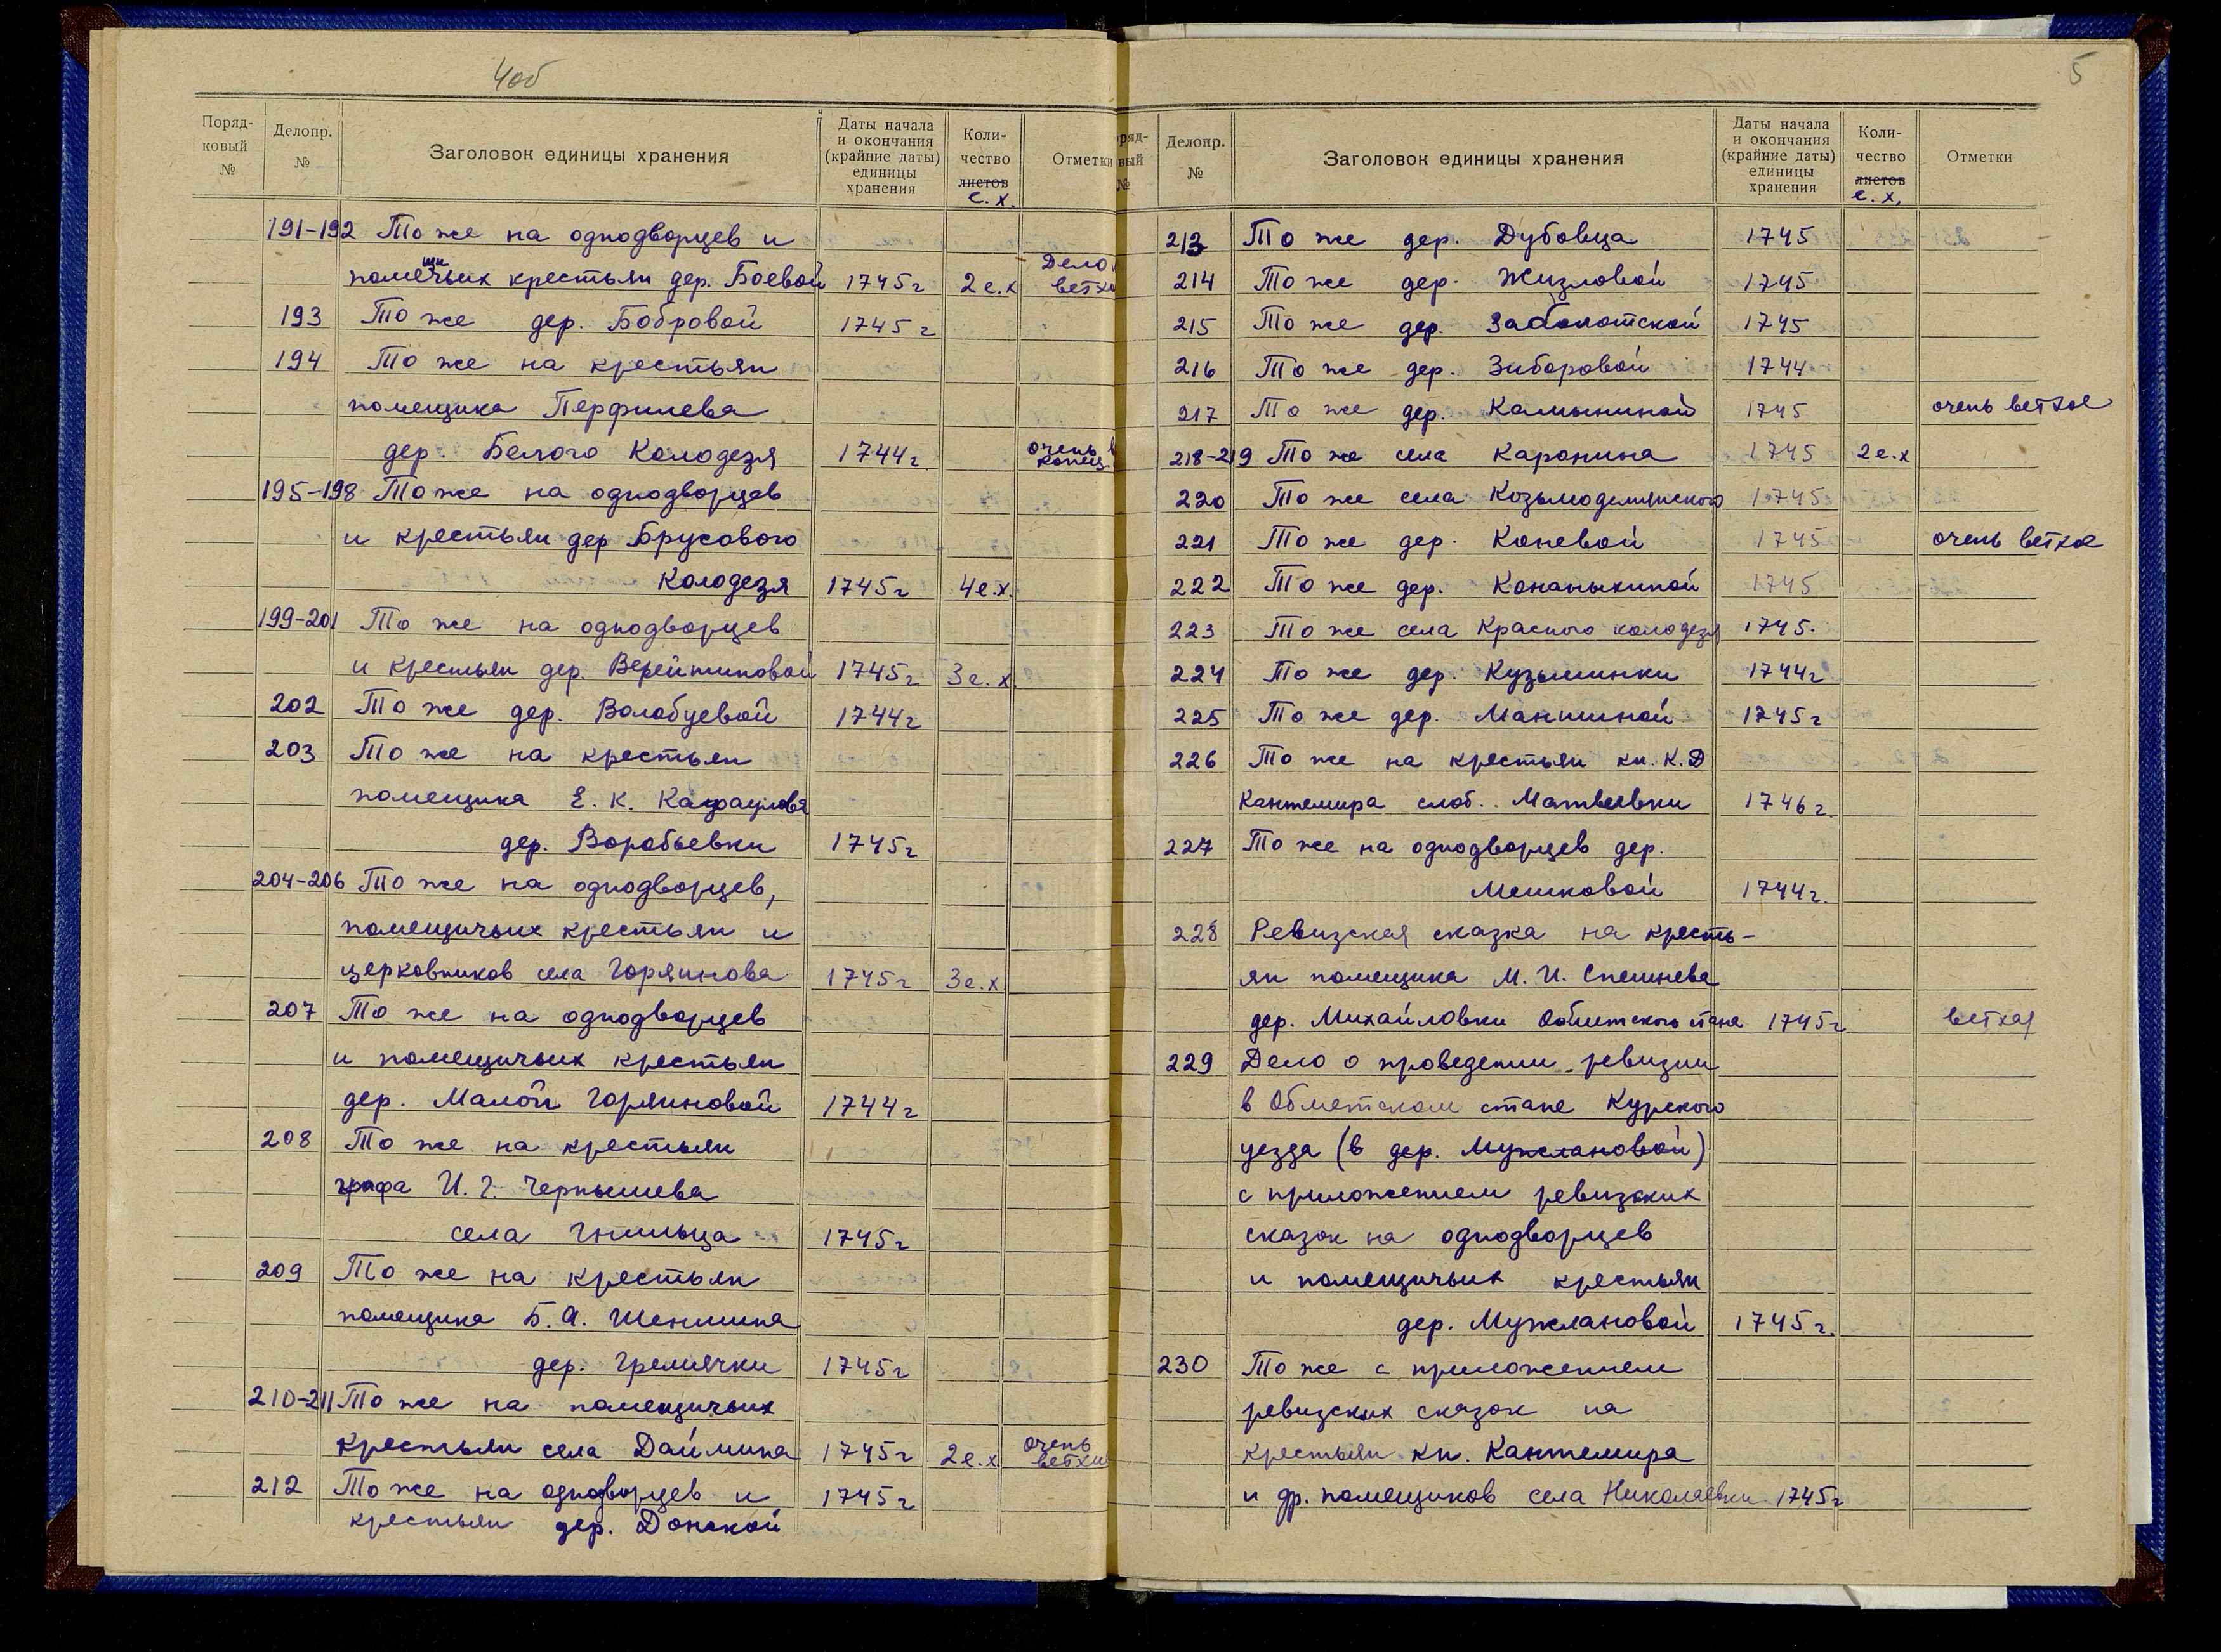 4об
Поряд-
ковый
№
Делопр.
№
Заголовок единицы хранения
Даты начала
и окончания
(крайние даты)
единицы
хранения
Коли-
чество
листов
е. х.
Отметки
191-192 То же на однодворцев и
помещичьих крестьян дер. Боевой 1745 г 2 е.х Дело
ветхи
193 То же дер. Бобровой 1745 г
194 То же на крестьян
помещика Перфилева
дер. Белого Колодезя 1744 г. очень
195-198 То же на однодворцев
и крестьян дер Брусового
Колодезя 1745 г 4 е.х.
199-201 То же на однодворцев
и крестьян дер. 1745 г 3 е. х.
202 То же дер. Волобуевой 1744 г
203 То же на крестьян
помещика Е. К.
дер. Воробьевки 1745 г
204-206 То же на однодворцев,
помещичьих крестьян и
церковников села Горяинова 1745 г 3 е.х
207 То же на однодворцев
и помещичьих крестьян
дер. Малой Горяиновой 1744 г
208 То же на крестьян
графа И. Г. Чернышева
села Гнильца 1745 г
209 То же на крестьян
помещика Б. А. Шеншина
дер. Гремячки 1745 г
210-211 То же на помещичьих
крестьян села Даймина 1745 г 2 е.х очень
ветхи
212 То же на однодворцев и 1745 г
крестьян дер. Донской
5
Делопр.
№
Заголовок единицы хранения
Даты начала
и окончания
(крайние даты)
единицы
хранения
Коли-
чество
листов
е. х.
Отметки
213 То же дер. Дубовца 1745
214 То же дер. Жизловой 1745
215 То же дер. Заболотской 1745
216 То же дер. Зиборовой 1744
217 То же дер. Калыниной 1745 очень ветхое
218-219 То же села Каронина 1745 2 е.х
220 То же села Козьмодемянского 1745
221 То же дер. Коневой 1745 очень ветхое
222 То же дер. Конаныхиной 1745
223 То же села Красного колодезя 1745.
224 То же дер. Кузьминки 1744 г
225 То же дер. Маншиной 1745 г
226 То же на крестьян кн. К. Д
Кантемира слоб. Матвеевки 1746 г.
227 То же на однодворцев дер.
Мешковой 1744 г.
228 Ревизская сказка на кресть-
ян помещика М. И. Спешнева
дер. Михайловки Обметского стана 1745 г ветхая
229 Дело о проведении ревизии
в Обметском стане Курского
уезда (в дер. Мужлановой)
с приложением ревизских
сказок на однодворцев
и помещичьих крестьян
дер. Мужлановой 1745 г.
230 То же с приложением
ревизских сказок на
крестьян кн. Кантемира
и др. помещиков села Николаевки 1745 г